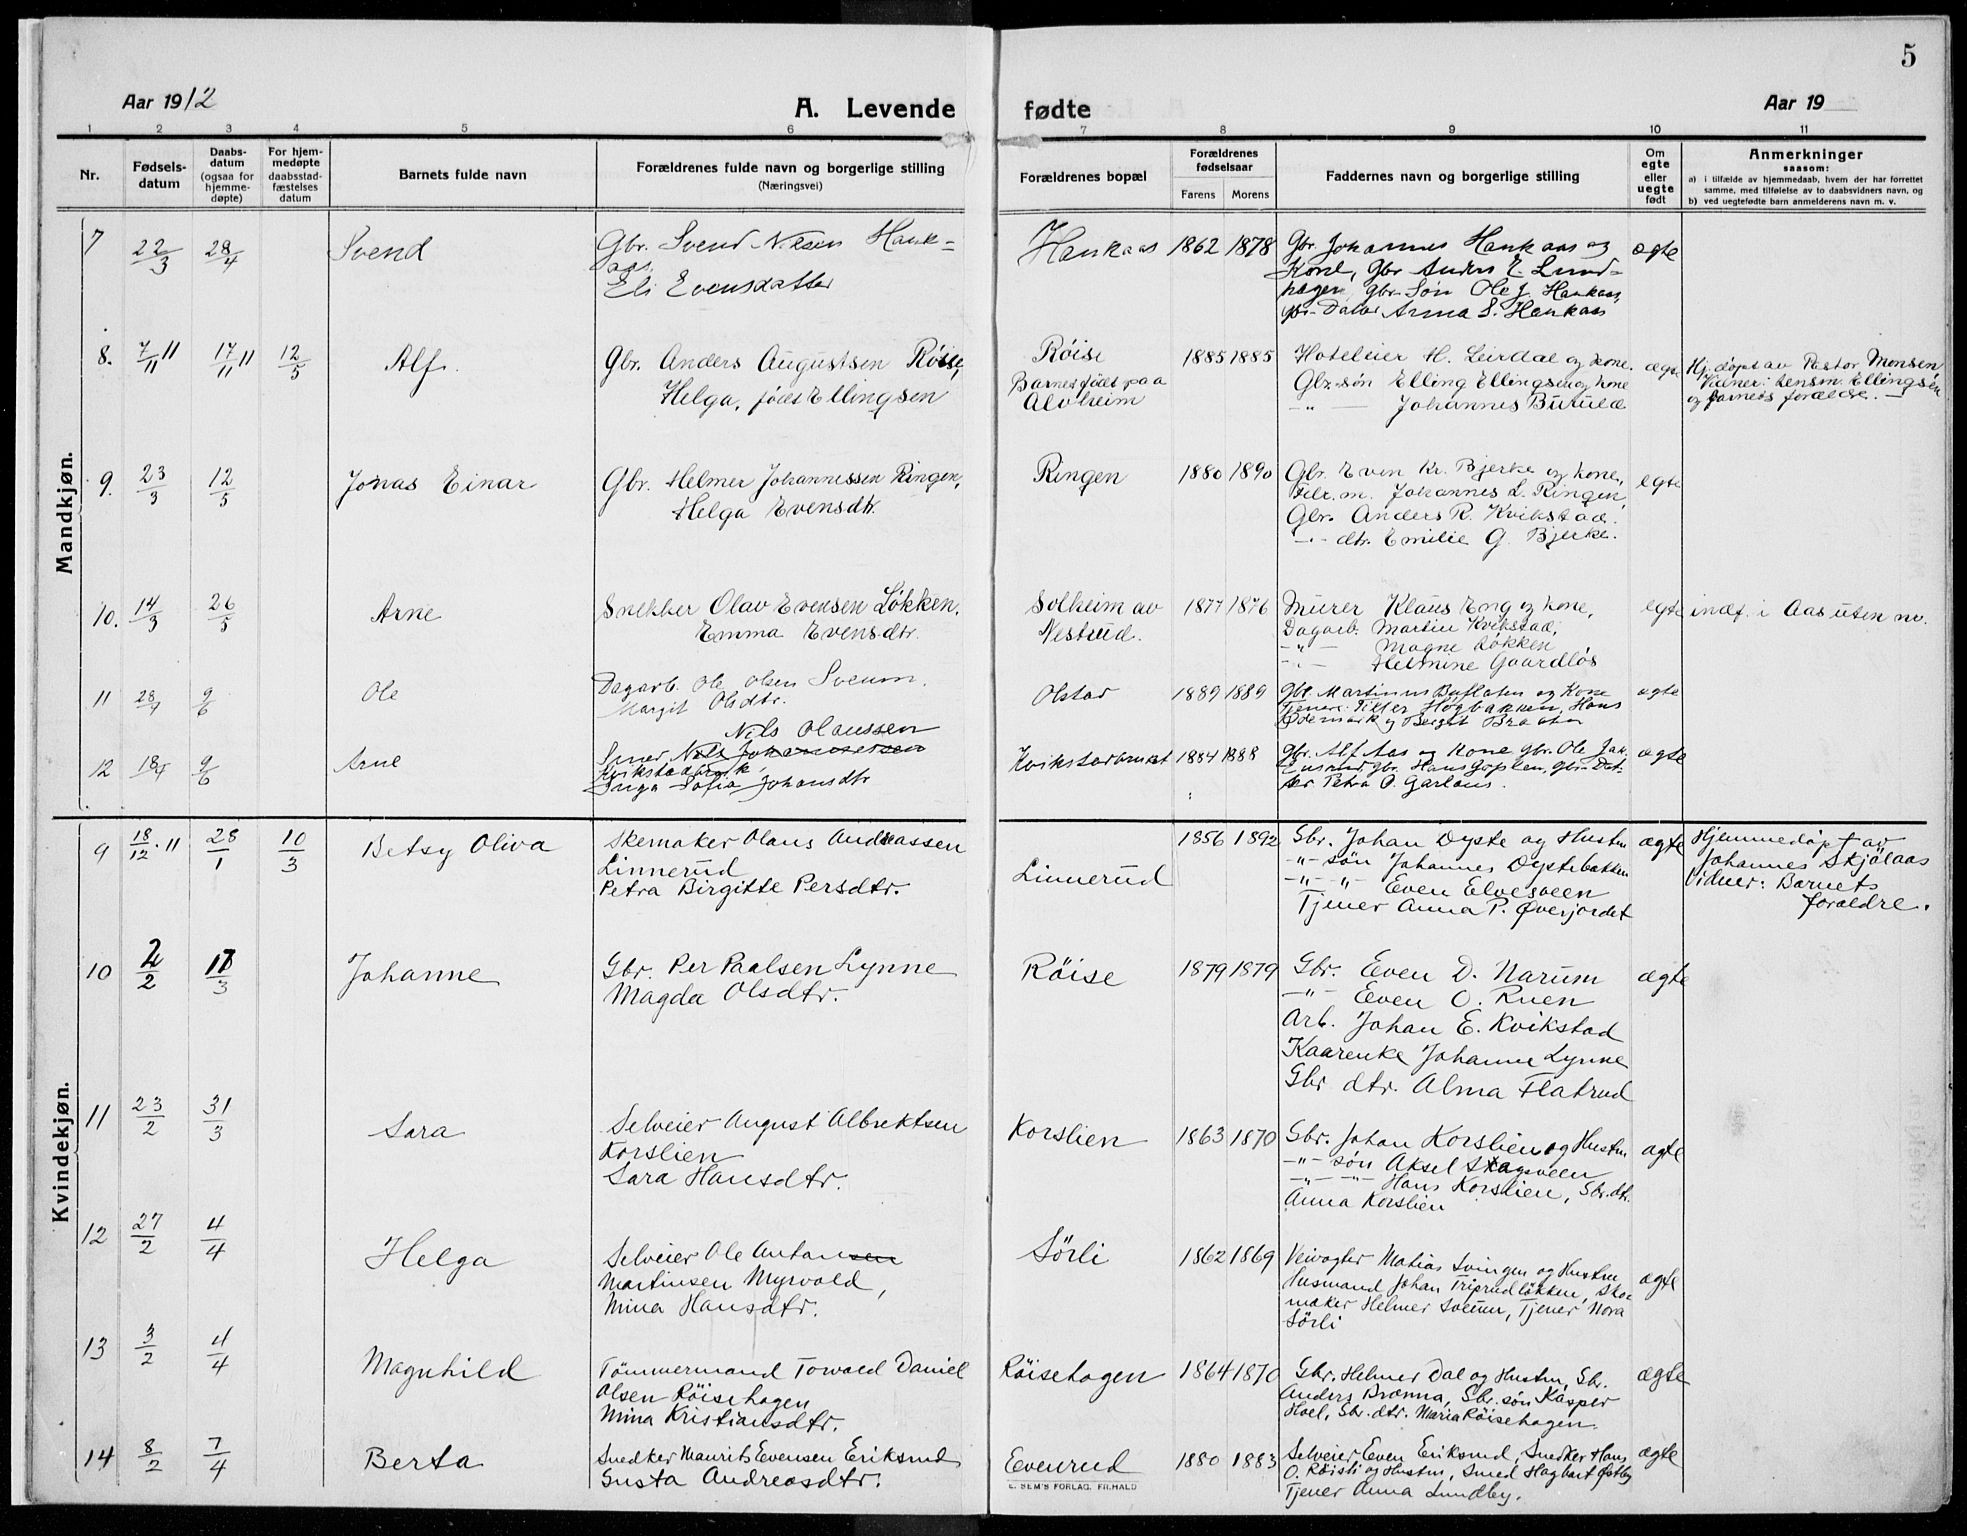 5
Aar 1912
A. Levende
fødte
Aar 19
1 2 3 4 5 6 7 8 9 10 11
Nr.
Fødsels-
datum
Daabs-
datum
(ogsaa for
hjemme-
døpte)
For hjem-
medøpte
daabsstad-
fæstelses
datum
Barnets fulde navn
Forældrenes fulde navn og borgerlige stilling
(Næringsvei)
Forældrenes bopæl
Forældrenes
fødselsaar
Farens Morens
Faddernes navn og borgerlige stilling
Om
egte
eller
uegte
født
Anmerkninger
saasom:
a) i tilfælde av hjemmedaab, hvem der har forrettet
samme, med tilføielse av to daabsvidners navn, og
b) ved uegtefødte barn anmelderens navn m. v.
Mandkjøn.
7 22/3 28/4 Svend
Gbr. Svend Nilsen Hank-
aas
Eli Evensdatter
Hankaas 1862 1878
Gbr. Johannes Hankaas og
Kone, Gbr Anders E. Lund-
hagen, Gbr. Søn Ole J. Hankaas,
Gbr. Datter Anna S. Hankaas
ægte
8. 7/11 11 17/11 11 12/5 Alf.
Gbr. Anders Augustsen Røise,
Helga, født Ellingsen
Røise
Barnet født paa
Alvheim
1885 1885
Hoteleier H. Leirdal og kone.
Gbr. søn Elling Ellingsen og kone
-"- Johannes Buruld
ægte
Hj. døpt av Pastor Monsen
Vidner: Lensm. Ellingsen
og barnets forældre.
9. 23/3 12/5 Jonas Einar
Gbr. Helmer Johannessen Ringen,
Helga Evensdtr.
Ringen 1880 1890
Gbr. Even Kr. Bjerke og kone,
Johannes L. Ringen,
Gbr. Anders R. Kvikstad.
-"- dtr. Emilie G. Bjerke.
egte
10. 14/3 26/5 Arne
Snekker Olav Evensen Løkken.
Emma Evensdtr.
Solheim av
Nestrud.
1877 1876
Murer Klaus Eng og kone,
Dagarb. Martin Kvikstad,
-"- Magne Løkken
-"- Helmine Gaardløs
egte
indf. i Aas uten nr.
11 28/4 9/6 Ole
Dagarb. Ole Olsen Sveum.
Margit Olsdtr.
Olstad 1889 1889
Gbr. Martinus Buflaten og Kone
Tjenere: Peller Høgbakken, Hans
Ødemark og Bergit Braaten
ægte
12 18/4 9/6 Arne
Nils Olaussen
Smed Nils Johannessen
Kvikstadbruk,
Inga Sofia Johansdtr
Kvikstadbruket 1884 1888
Gbr. Alf Aas og Kone Gbr. Ole Jak.
Gbr. Hans Goplen, Gbr. Dat-
ter Petra O. Garlaus.
ægte
Kvindekjøn.
9 18/12 11 28/1 10/3 Betsy Oliva
Skomaker Olaus Andreassen
Linnerud
Petra Birgitte Persdtr.
Linnerud 1856 1892
Gbr. Johan Dyste og Hustru
-"- søn Johannes Dystebakken
-"- -"- Even Elvesveen
Tjener Anna P. Øverjordet
ægte
Hjemmedøpt av
Johannes Skjølaas
Vidner: Barnets
forældre.
10 2/2 17/3 Johanne
Gbr. Per Paalsen Lynne
Magda Olsdtr.
Røise 1879 1879
Gbr. Even D. Narum
-"- Even O. Ruen
Arb. Johan E. Kvikstad
Kaarenke Johanne Lynne
Gbr dtr. Alma Flatrud
ægte
11 23/2 31/3 Sara
Selveier August Albrektsen
Korslien
Sara Hansdtr.
Korslien 1863 1870
Gbr. Johan Korslien og Hustru
-"- søn Aksel Skagsveen
-"- -"- Hans Korslien, Gbr. dtr.
Anna Korslien
ægte
12 27/2 4/4 Helga
Selveier Ole Antonsen
Martinsen Myrvold,
Mina Hansdtr.
Sörli 1862 1869
Veivogter Matias Svingen og Hustru
Husmand Johan Triprudløkken, Sko-
maker Helmer Sveum, Tjener Nora
Sörli
ægte
13 3/2 4/4 Magnhild
Tømmermand Torvald Daniel
Olsen Røisehagen
Mina Kristiansdtr.
Røisehagen 1864 1870
Gbr. Helmer Dal og Hustru, Gbr.
Anders Brænna, Gbr. søn Kasper
Hoel, Gbr. dtr. Maria Røisehagen.
ægte
14 8/2 7/4 Berta
Snedker Maurits Evensen Eriksrud
Gusta Andreasdtr.
Evenrud 1880 1883
Selveier Even Eriksrud, Snedker Hans
O. Røisli og Hustru, Smed Hagbart Østby
Tjener Anna Lundby.
ægte
E. SEM'S FORLAG, FR.HALD